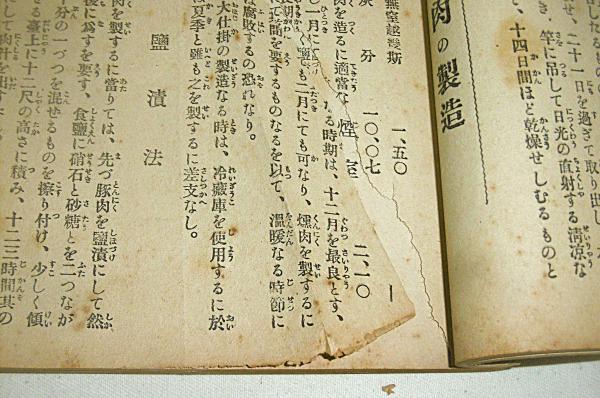 したるもの
せ、二十一日を過ぎて取り出し
き、竿に吊して日光の直射する淸凉な
、十四日間ほど乾燥せしむるものと
肉の製造
無窒越幾斯　一、五〇　二、一〇
灰分　一〇、〇七　—
肉を造るに適當な
る時期は、十二月を最良とす、
一月に
く鹽も二月にても可なり、燻肉を製するに
を要するものなるを以て、溫暖なる時節に
腐敗するの恐れなり。
大仕掛の製造なる時は、冷藏庫を使用するに於
夏季と雖も之を製するに差支なし。
鹽漬法
肉を製するに當りては、先づ豚肉を鹽漬にして然
後に爲すを要す、食鹽に硝石と砂糖とを二つなが
十分の一づつを混ぜるものを擦り付け、少しく傾
る臺上に十二尺の高さに積み、十二三時間其の